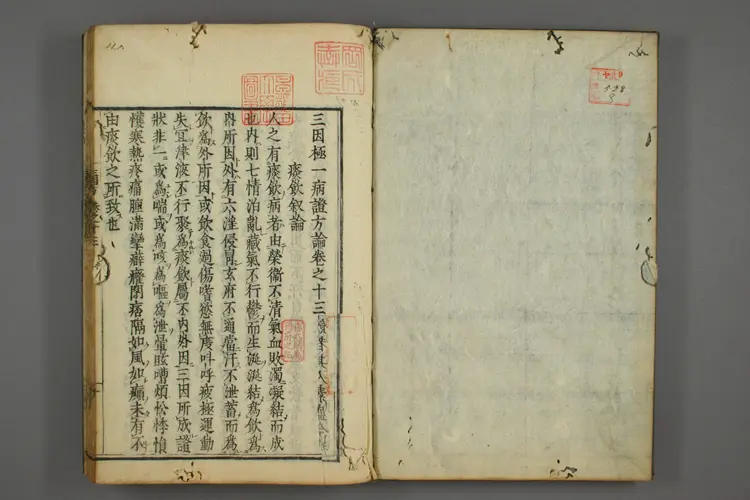 三因極一病證方論卷之十三
痰飲叙論
人之有痰飲病者由榮衛不清氣血敗濁凝結而成
也内則七情泊亂藏氣不行鬱而生涎涎結爲飲爲
内所因外有六淫侵冒玄府不通當汗不泄蓄而爲
飲爲外所因或飲食過傷嗜慾無度叫呼疲極運動
失宜津液不行聚爲痰飲屬不内外因三因所成證
狀非一或爲喘或爲咳爲嘔爲泄暈眩嘈煩忪悸慎
懼寒熱疼痛腫滿攣癖癃閉痞隔如風如癲未有不
由痰飲之所致也